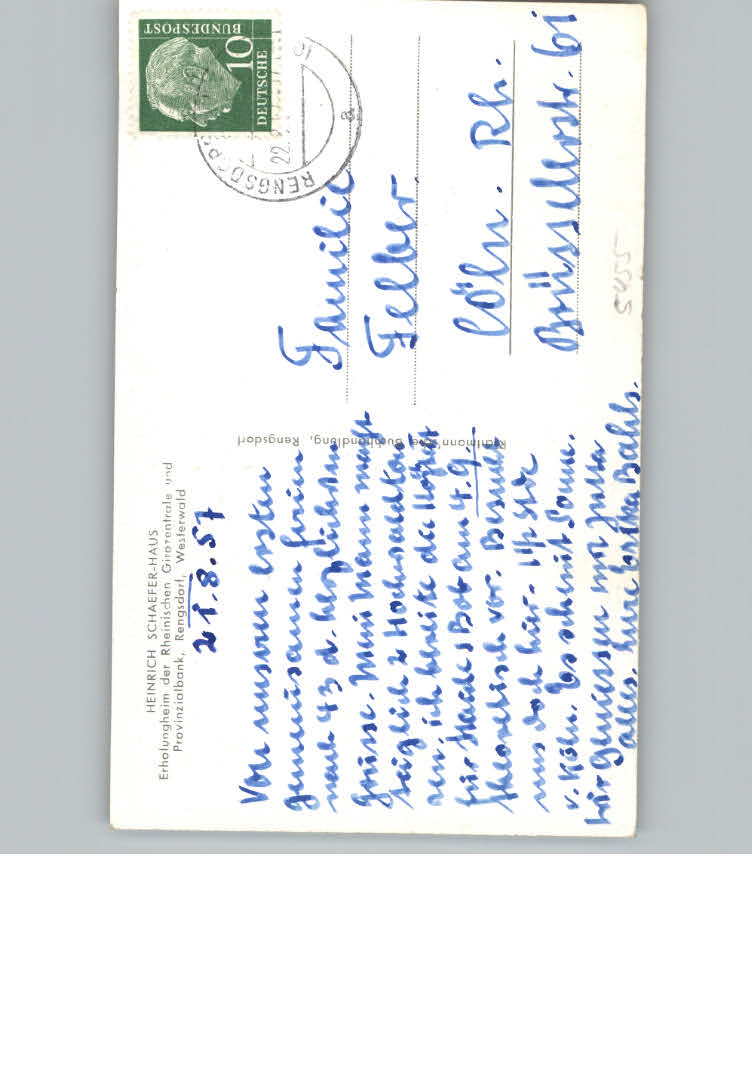 HEINRICH SCHAEFER-HAUS
Erholungheim der Rheinischen Girozentrale und
Provinzialbank, Rengsdorf, Westerwald
21.8.57
Von unseren ersten
gemeinsamen Ferien
nach 43 d. herzlichsten
Grüsse. Mein Mann macht
täglich 2 Hochwaldtou
ren, ich bereite die
für am 4.9.
theoretisch vor. Besucht
uns doch hier. 1½ Std
v. Köln. Es scheint Sonne.
Wir geniessen mit
alles. Eure
Buchhandlung, Rengsdorf
DEUTSCHE
BUNDESPOST
10
RENGSDORF
22.
a
Familie
Felber.
Cöln. Rh.
Brüsselerstr. 61
5455